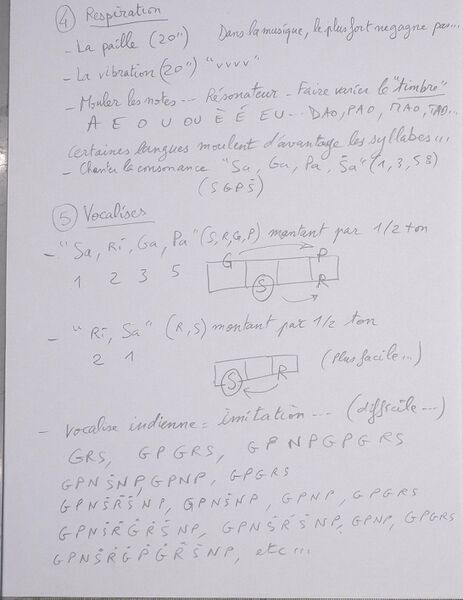 ④ Respiration
- La paille (20") Dans la musique, le plus fort ne gagne pas...
- La vibration (20") "vvvv"
- Mouler les notes... Résonateur - Faire varier le "timbre"
A E O U OU È É EU... DAO, PAO, MAO, TAO...
Certaines langues moulent d'avantage les syllabes...
- Chanter la consonance "Sa, Ga, Pa, Ṡa" (1, 3, 5 8)
(S G P Ṡ)
⑤ Vocalises
- "Sa, Ri, Ga, Pa" (S, R, G, P) montant par 1/2 ton
1 2 3 5
G P
S R
- "Ri, Sa" (R, S) montant par 1/2 ton
2 1
(Plus facile...)
S R
- Vocalise indienne = imitation... (difficile...)
GRS, GPGRS, GPNPGPGRS
GPNṠNPGPNP, GPGRS
GPNṠṘṠNP, GPNṠNP, GPNP, GPGRS
GPNṠṘĠṘṠNP, GPNṠṘṠNP, GPNP, GPGRS
GPNṠṘĠṖĠṘṠNP, etc...